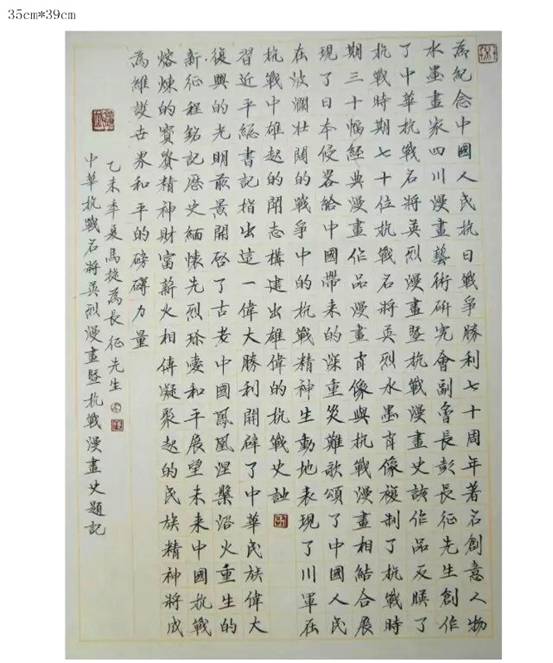 35cm*39cm
為紀念中國人民抗日戰爭勝利七十周年著名創意人物
水墨畫家四川漫畫藝術研究會副會長彭長征先生創作
了中華抗戰名將英烈漫畫暨抗戰漫畫史該作品反映了
抗戰時期七十位抗戰名將英烈水墨肖像複制了抗戰時
期三十幅經典漫畫作品漫畫肖像與抗戰漫畫相結合展
現了日本侵畧給中國帶來的深重災難歌頌了中國人民
在波瀾壯闊的戰爭中的抗戰精神生動地表現了川軍在
抗戰中雄起的鬥志構建出雄偉的抗戰史詩
習近平總書記指出這一偉大勝利開辟了中華民族偉大
復興的光明前景開啓了古老中國鳳凰涅槃浴火重生的
新征程銘記歷史緬懷先烈珍愛和平展望未來中國抗戰
熔煉的寶貴精神財富薪火相傳凝聚起的民族精神將成
為維護世界和平的磅礴力量
乙未季夏馬為長征先生
中華抗戰名將英烈漫畫暨抗戰漫畫史題記